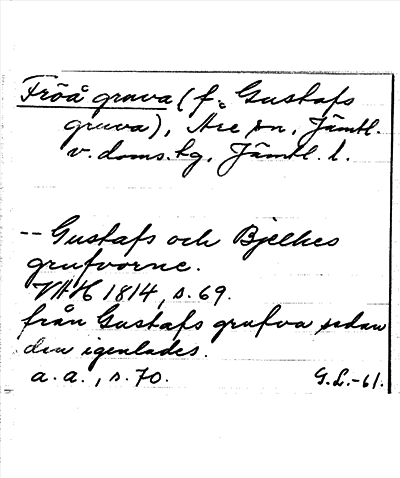 Fröå gruva (f. Gustafs
gruva), Åre sn, Jämtl.
v. doms. tg, Jämtl. l.
-- Gustafs och Bjelkes
grufvorne.
VAH 1814, s. 69.
från Gustafs grufva, sedan
den igenlades.
a. a., s. 70. G.L.-61.